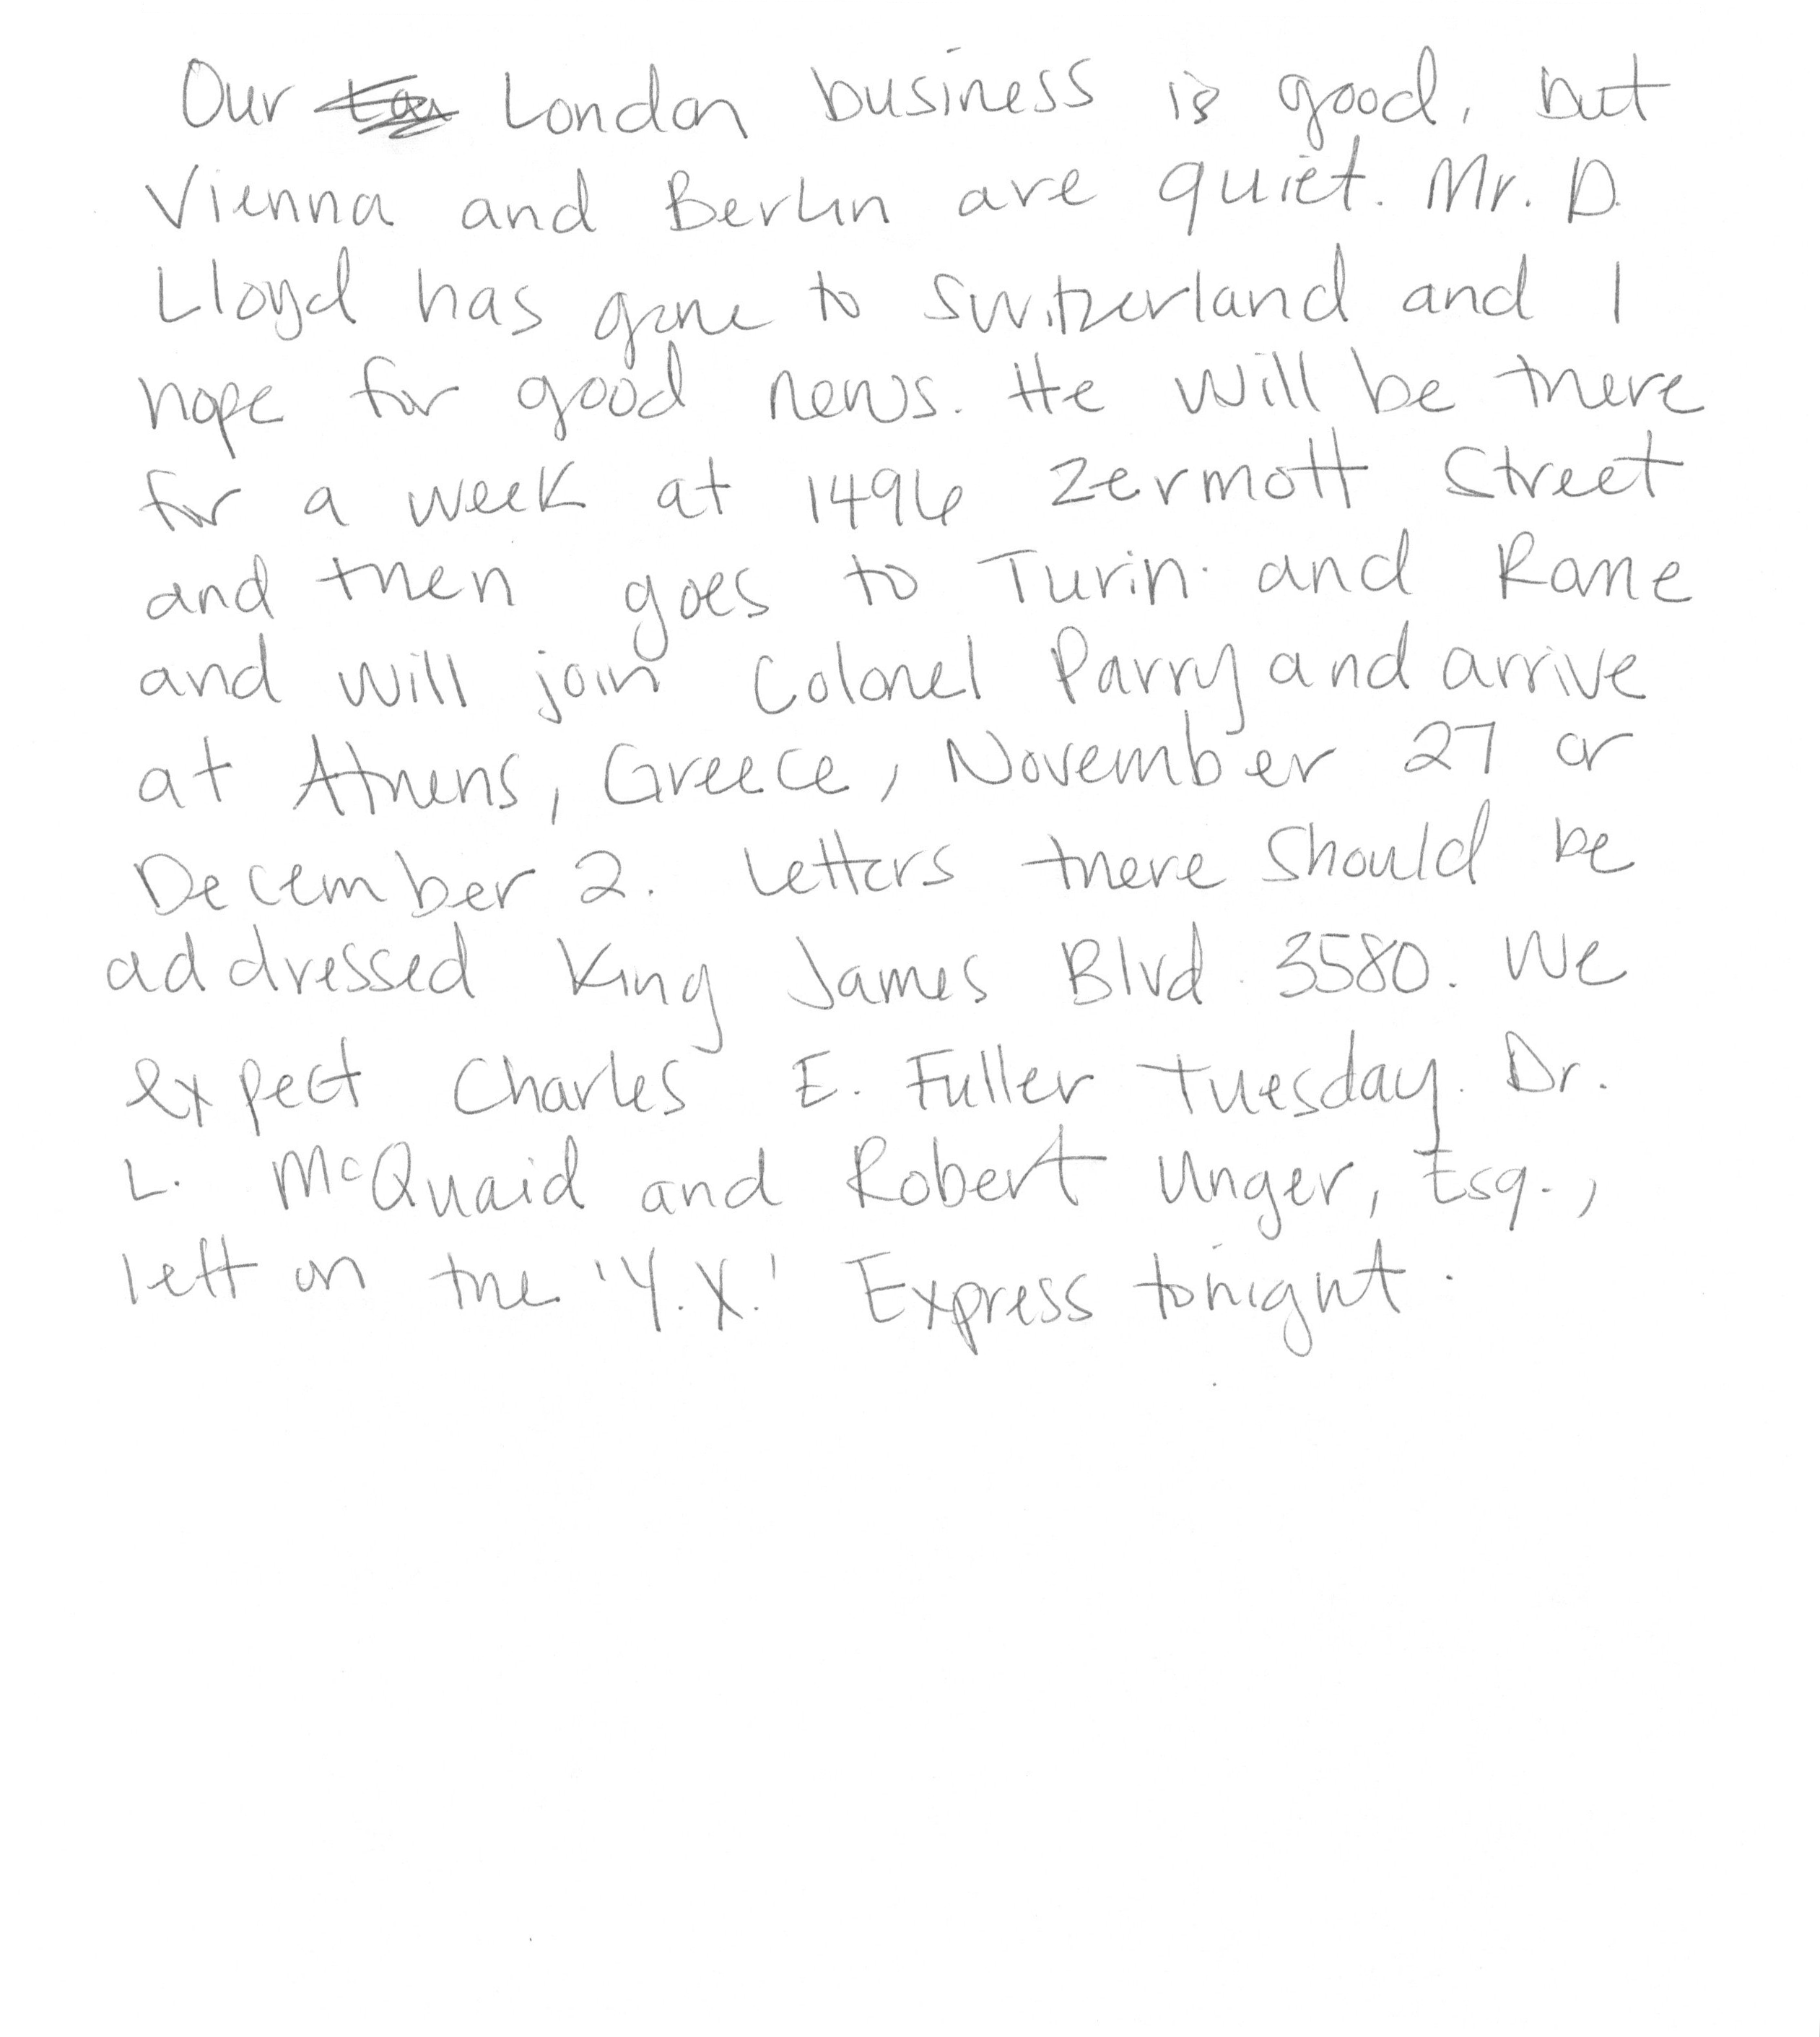 Our London business is good, but
Vienna and Berlin are quiet. Mr. D.
Lloyd has gone to Switzerland and I
hope for good news. He will be there
for a week at 1496 Zermott Street
and then goes to Turin and Rome
and will join Colonel Parry and arrive
at Athens, Greece, November 27 or
December 2. Letters there should be
addressed King James Blvd. 3580. We
expect Charles E. Fuller Tuesday. Dr.
L. McQuaid and Robert Unger, Esq.,
left on the 'Y.X.' Express tonight.